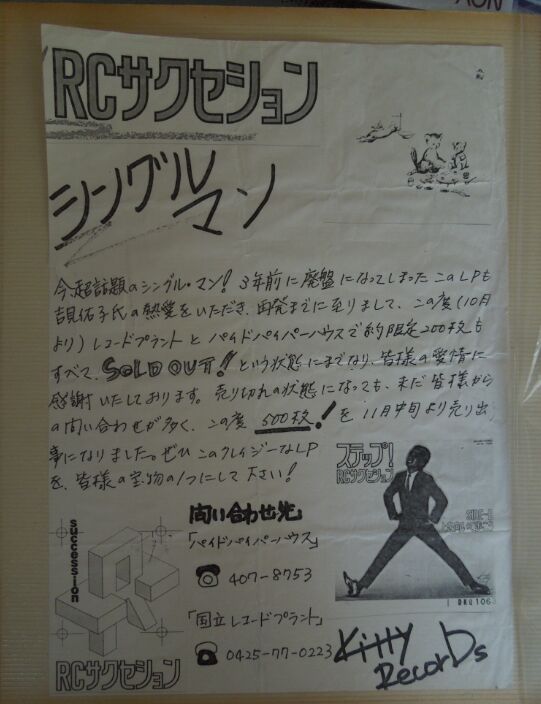 RCサクセション
シングル
マン
今、超話題のシングル・マン! 3年前に廃盤になってしまったこのLPも
吉見佑子氏の熱愛をいただき、再発までに至りまして、この度(10月
より)レコードプラントとパイドパイパーハウスで約限定200枚も
すべて、SOLD OUT!という状態にまでなり、皆様の愛情に
感謝いたしております。売り切れの状態になっても、未だ皆様から
の問い合わせが多く、この度 500枚!を11月中旬より売り出す
事になりました。ぜひこのクレイジーなLP
を、皆様の宝物の1つにして下さい!
ステップ!
RCサクセション
SIDE-B
上を向いて歩こう
DKQ 106
問い合わせ先
「パイドパイパーハウス」
☎ 407-8753
「国立レコードプラント」
☎ 0425-77-0223
succession
RCサクセション
Kitty
Records